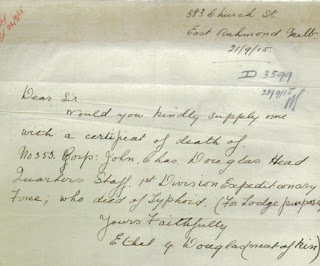 583 Church St.
East Richmond Melb.
21/9/15.
D 3599
22/9/15
Dear Sir
Would you kindly supply me
with a certificat of death of.
No 353. Corp: John. Chas Douglas Head
Quarters Staff. 1st Division Expeditionary
Force; who died of Typhoid. (For Lodge purposes
Yours Faithfully
Ethel. Y Douglas (next of kin)